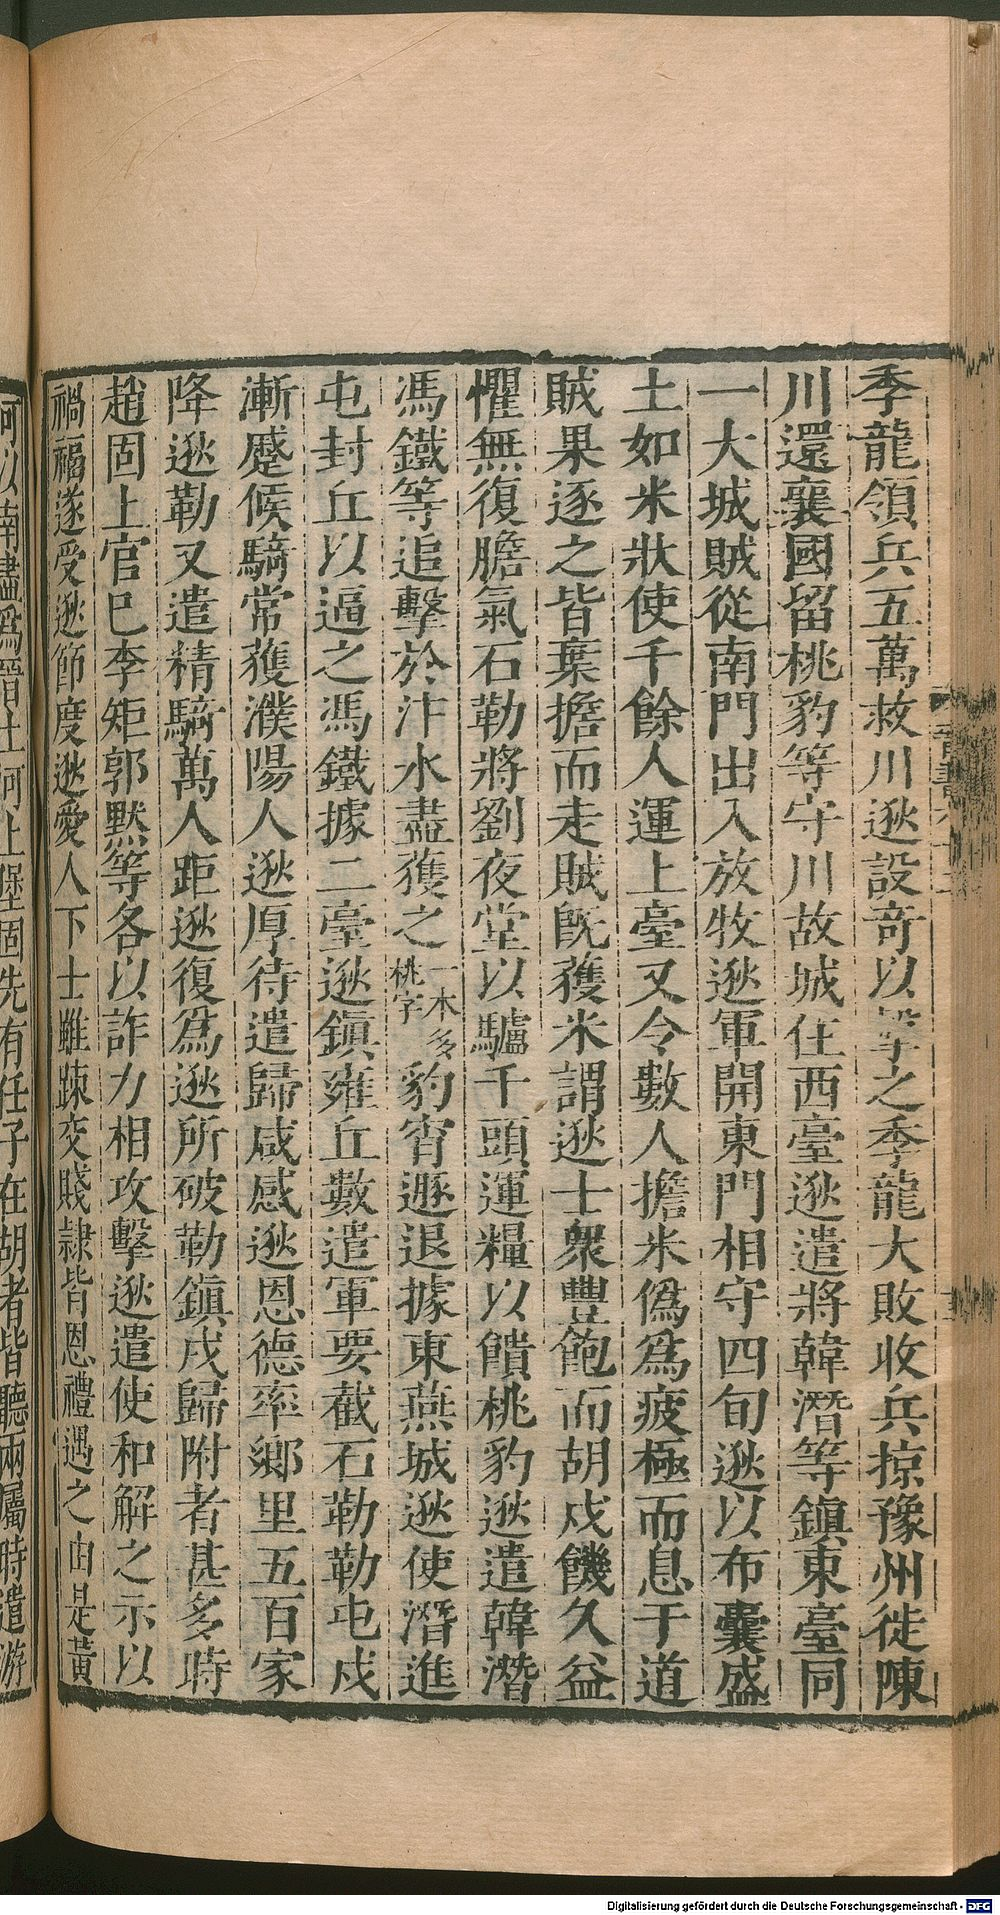 季龍領兵五萬救川逖設奇以擊之季龍大敗收兵掠豫州徙陳
川還襄國留桃豹等守川故城住西臺逖遣將韓潛等鎮東臺同
一大城賊從南門出入放牧逖軍開東門相守四旬逖以布囊盛
土如米狀使千餘人運上臺又令數人擔米僞爲疲極而息于道
賊果逐之皆棄擔而走賊旣獲米謂逖士衆豐飽而胡戍饑久益
懼無復膽氣石勒將劉夜堂以驢千頭運糧以饋桃豹逖遣韓潛
馮鐵等追擊於汴水盡獲之一本多桃字豹宵遯退據東燕城逖使潛進
屯封丘以逼之馮鐵據二臺逖鎮雍丘數遣軍要截石勒勒屯戍
漸蹙候騎常獲濮陽人逖厚待遣歸咸感逖恩德率鄉里五百家
降逖勒又遣精騎萬人距逖復爲逖所破勒鎮戍歸附者甚多時
趙固上官巳李矩郭默等各以詐力相攻擊逖遣使和解之示以
禍福遂受逖節度逖愛人下士雖踈交賤隷皆恩禮遇之由是黃
河以南盡爲晉土河上堡固先有任子在胡者皆聽兩屬時遣游
Digitalisierung gefördert durch die Deutsche Forschungsgemeinschaft - DFG